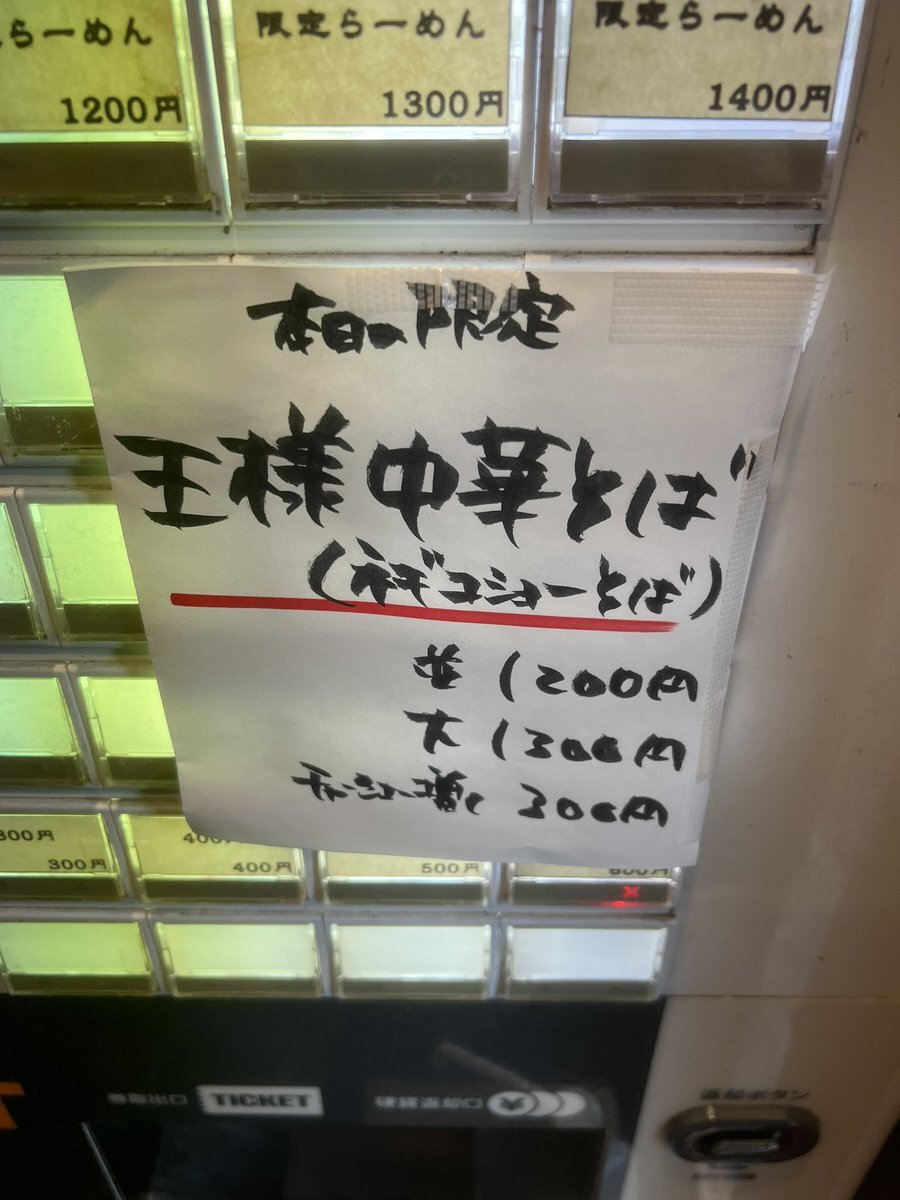 らーめん
限定らーめん
限定らーめん
1200円
1300円
1400円
本日の限定
王様中華そば
(ネギコショーそば)
並 1200円
大 1300円
チャーシュー増し 300円
300円
400円
300円
400円
500円
600円
券取出口
TICKET
硬貨返却口
¥
返却ボタン